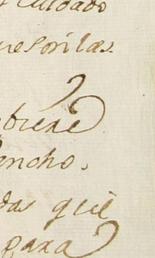 Cuidado
ue Sorilas.
tiene
encho.
das que
para